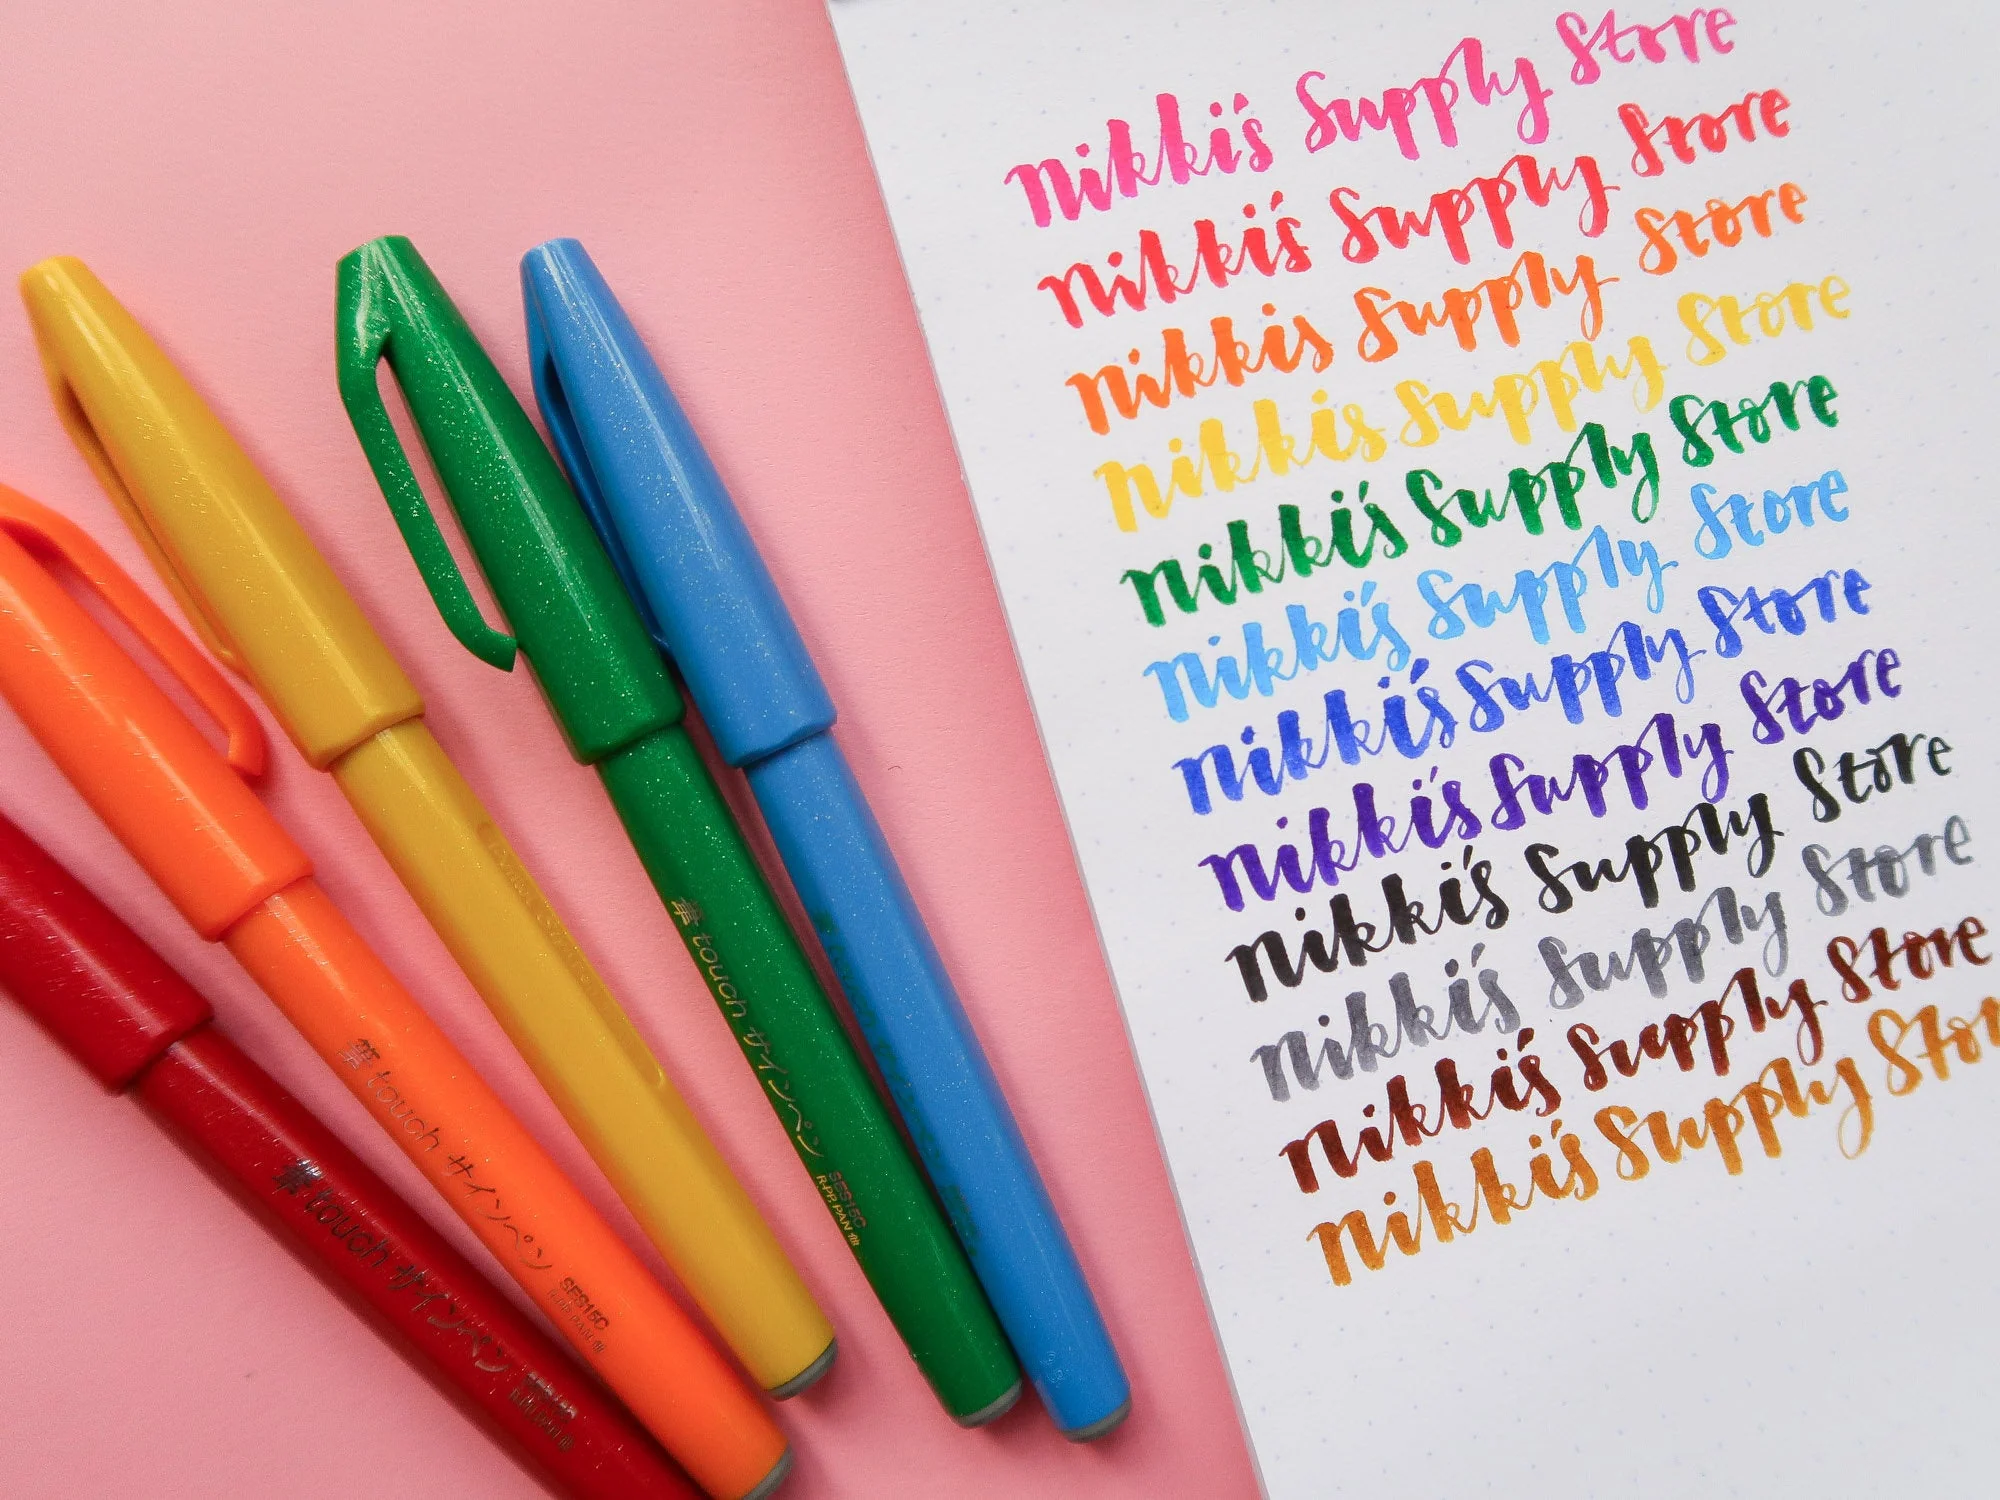 Nikki's Supply Store
Nikki's Supply Store
Nikkis Supply Store
Nikkis Supply Store
Nikki's Supply Store
Nikki's Supply Store
Nikki's Supply Store
Nikki's Supply Store
Nikki's Supply Store
Nikki's Supply Store
Nikki's Supply Store
Nikki's Supply Stor
筆touch サインペン
SES15C
筆touch サインペン
SES15C
筆touch サインペン
筆touch